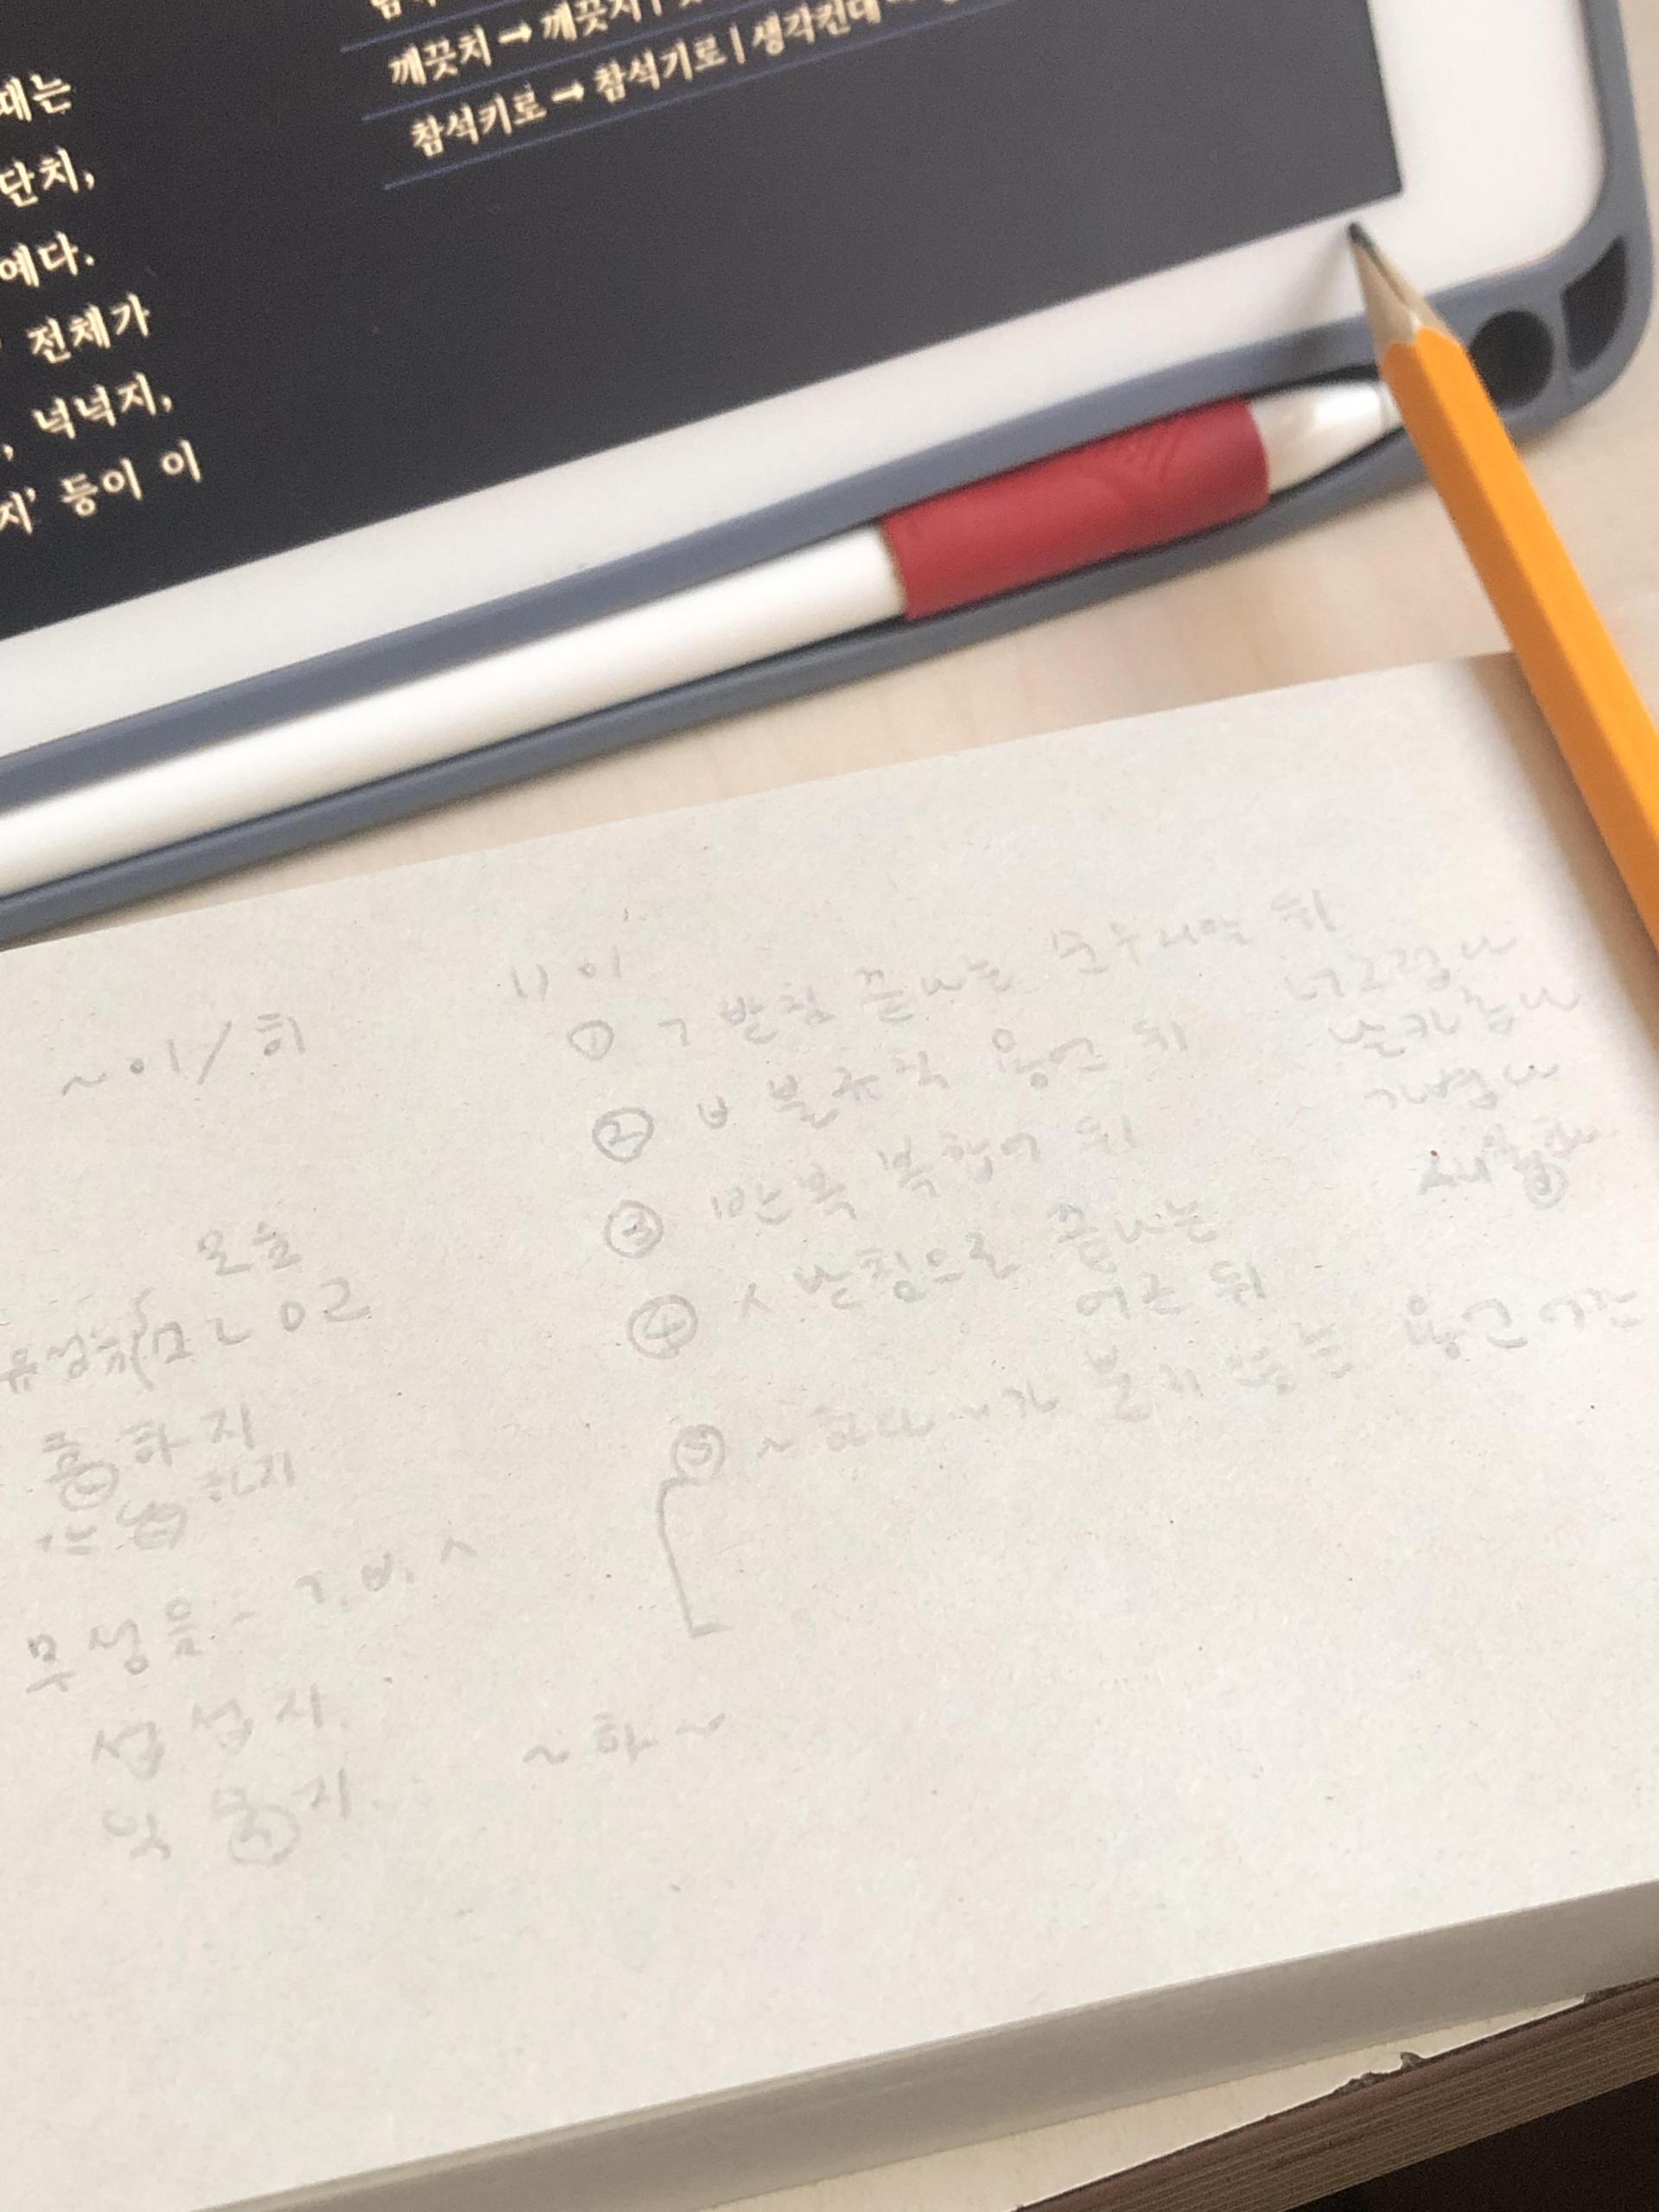 때는
단치,
예다.
전체가
, 넉넉지,
지’ 등이 이
깨끗치 → 깨끗지 |
참석키로 → 참석기로 | 생각컨대
~이/히
모음
유성음 ㅁㄴㅇㄹ
흔하지
하지
무성음 - ㄱ, ㅂ, ㅅ
섭섭지
~하~
1) 이
① ㄱ 받침 끝나는 순우리말 뒤
② ㅂ 불규칙 용언 뒤
③ 반복 복합어 뒤
④ ㅅ 받침으로 끝나는
어근 뒤
⑤ ~하다~가 붙지 않는 용언 어간
너그럽다
날카롭다
가볍다
새롭다